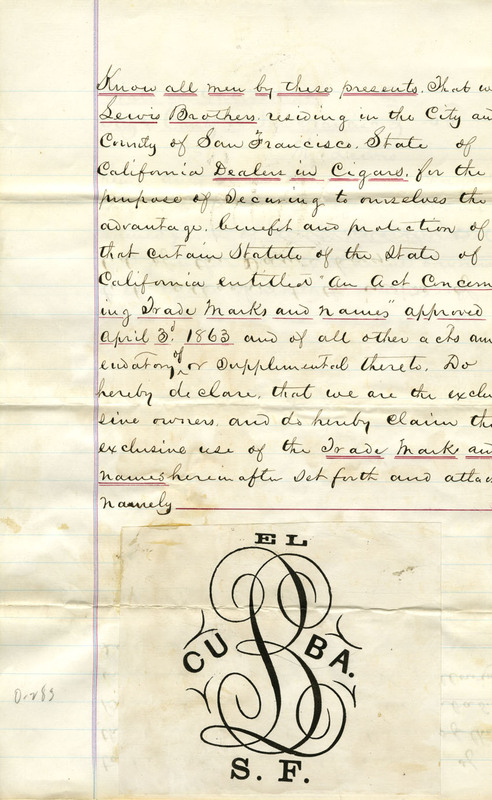 Know all men by these presents. That we
Lewis Brothers, residing in the City an
County of San Francisco. State of
California Dealers in Cigars, for the
purpose of Securing to ourselves the
advantage, benefit and protection of
that certain Statute of the State of
California entitled "An Act Concern
ing Trade Marks and names" approved
April 3d 1863 and of all other acts am
endatory of or Supplemental thereto, Do
hereby declare, that we are the exclu
sive owners, and do hereby claim the
exclusive use of the Trade Mark and
names hereinafter Set forth and attac
namely
EL
CU BA.
S. F.